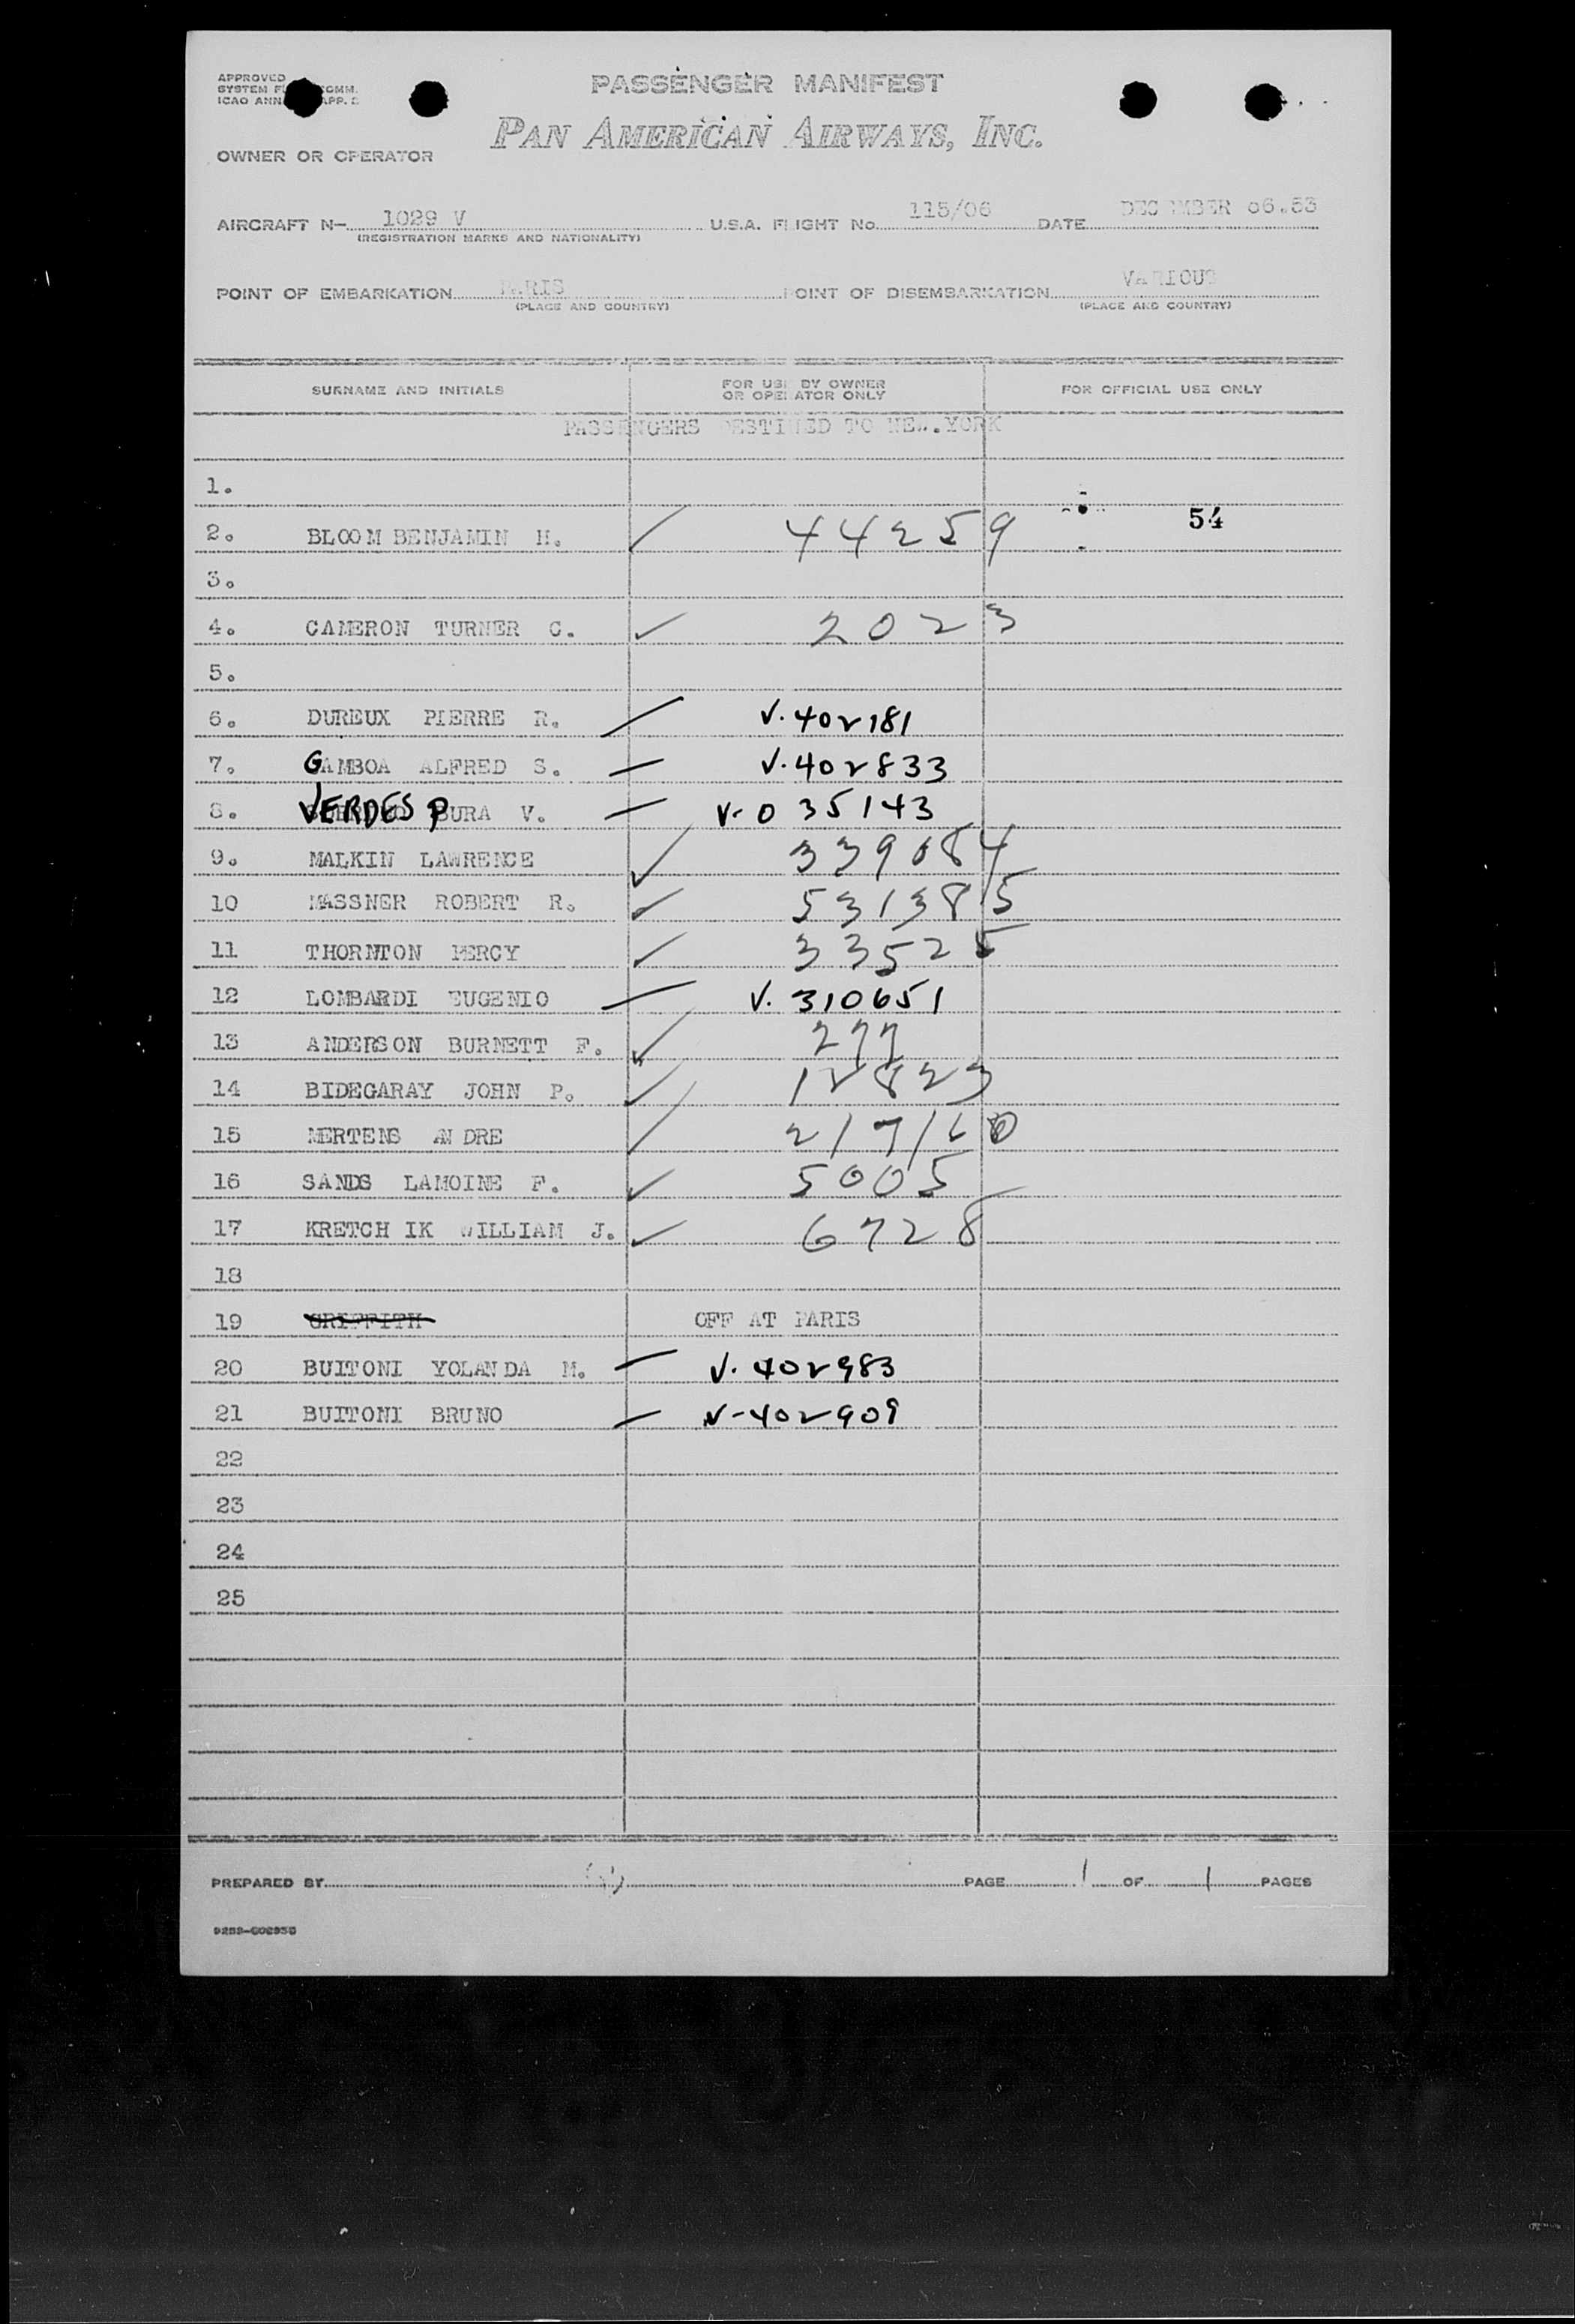 APPROVED
SYSTEM COMM.
ICAO APP. 2
PASSENGER MANIFEST
PAN AMERICAN AIRWAYS, INC.
OWNER OR OPERATOR
AIRCRAFT N- 1029 V U.S.A. FLIGHT No. 115/06 DATE DECEMBER 06.53
(REGISTRATION MARKS AND NATIONALITY)
POINT OF EMBARKATION PARIS POINT OF DISEMBARKATION VARIOUS
(PLACE AND COUNTRY) (PLACE AND COUNTRY)
SURNAME AND INITIALS FOR USE BY OWNER OR OPERATOR ONLY FOR OFFICIAL USE ONLY
PASSENGERS DESTINED TO NEW.YORK
1.
2. BLOOM BENJAMIN H. ✓ 44259 54
3.
4. CAMERON TURNER C. ✓ 2023
5.
6. DUREUX PIERRE R. V. 402181
7. GAMBOA ALFRED S. — V. 402833
8. VERDES PURA V. — V-035143
9. MALKIN LAWRENCE ✓ 339084
10 MASSNER ROBERT R. ✓ 531385
11 THORNTON PERCY ✓ 33525
12 LOMBARDI EUGENIO — V. 310651
13 ANDERSON BURNETT F. ✓ 277
14 BIDEGARAY JOHN P. ✓ 12823
15 MERTENS ANDRE 217160
16 SANDS LAMOINE F. ✓ 5005
17 KRETCH IK WILLIAM J. ✓ 6728
18
19 GRIFFITH OFF AT PARIS
20 BUITONI YOLANDA M. — V. 402983
21 BUITONI BRUNO — V-402909
22
23
24
25
PREPARED BY PAGE 1 OF 1 PAGES